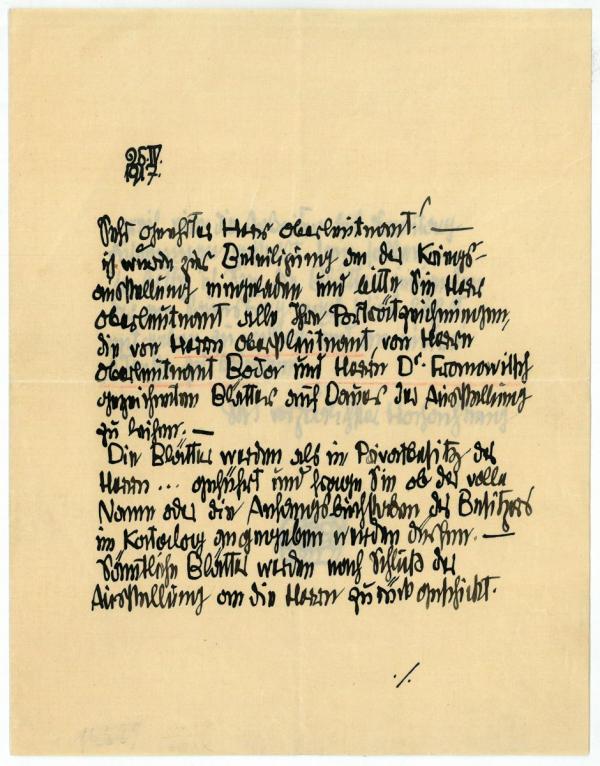 25.IV.
1917.
Sehr geehrter Herr Oberleutnant! —
ich wurde zur Beteiligung an der Kriegs-
ausstellung eingeladen und bitte Sie Herr
Oberleutnant alle Ihre Porträtzeichnungen,
die von Herrn Oberstleutnant, von Herrn
Oberleutnant und Herrn Dr.
gezeichneten Blätter auf Dauer der Ausstellung
zu leihen. —
Die Blätter werden als in Privatbesitz des
Herrn ... geführt und frage Sie ob der volle
Name oder die Anfangsbuchstaben des Besitzers
im Katalog angegeben werden dürfen. —
Sämtliche Blätter werden nach Schluß der
Ausstellung an die Herrn zurück geschickt.
./.